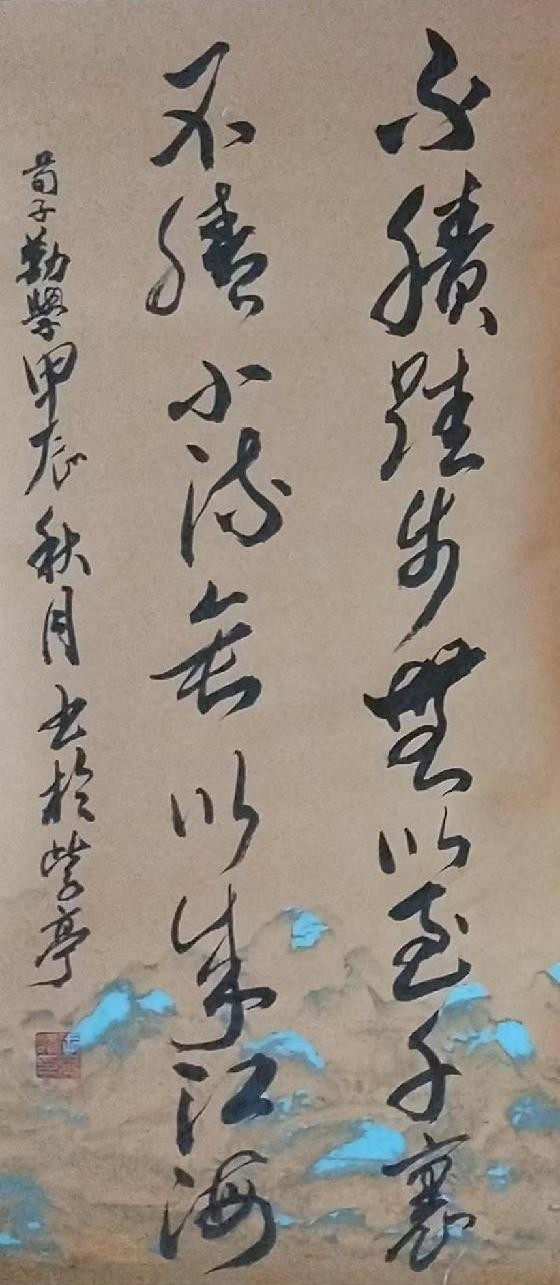 不積跬步無以至千裏
不積小流無以成江海
荀子勸學甲辰秋月书於紫亭